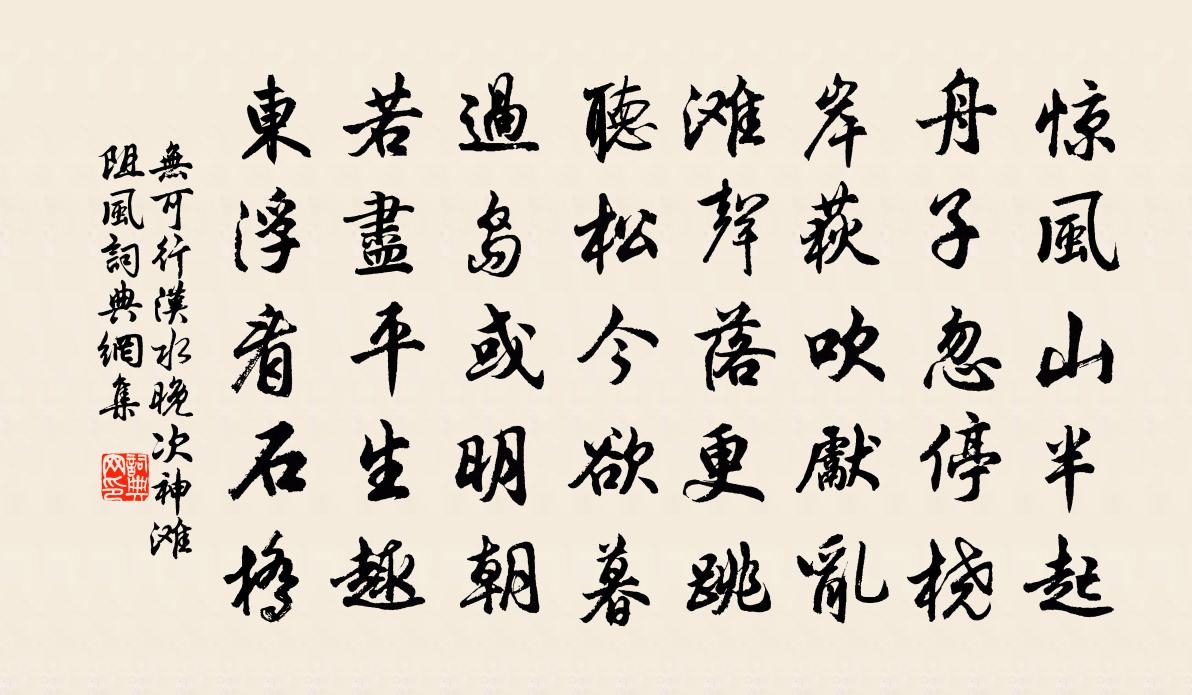 惊風山半起
舟子忽停桡
岸荻吹獻亂
滩聲落更跳
聽松今欲暮
過島或明朝
若盡平生趣
東浮看石橋
無可行漢水晚次神滩
阻風詞典網集
詞典
网印